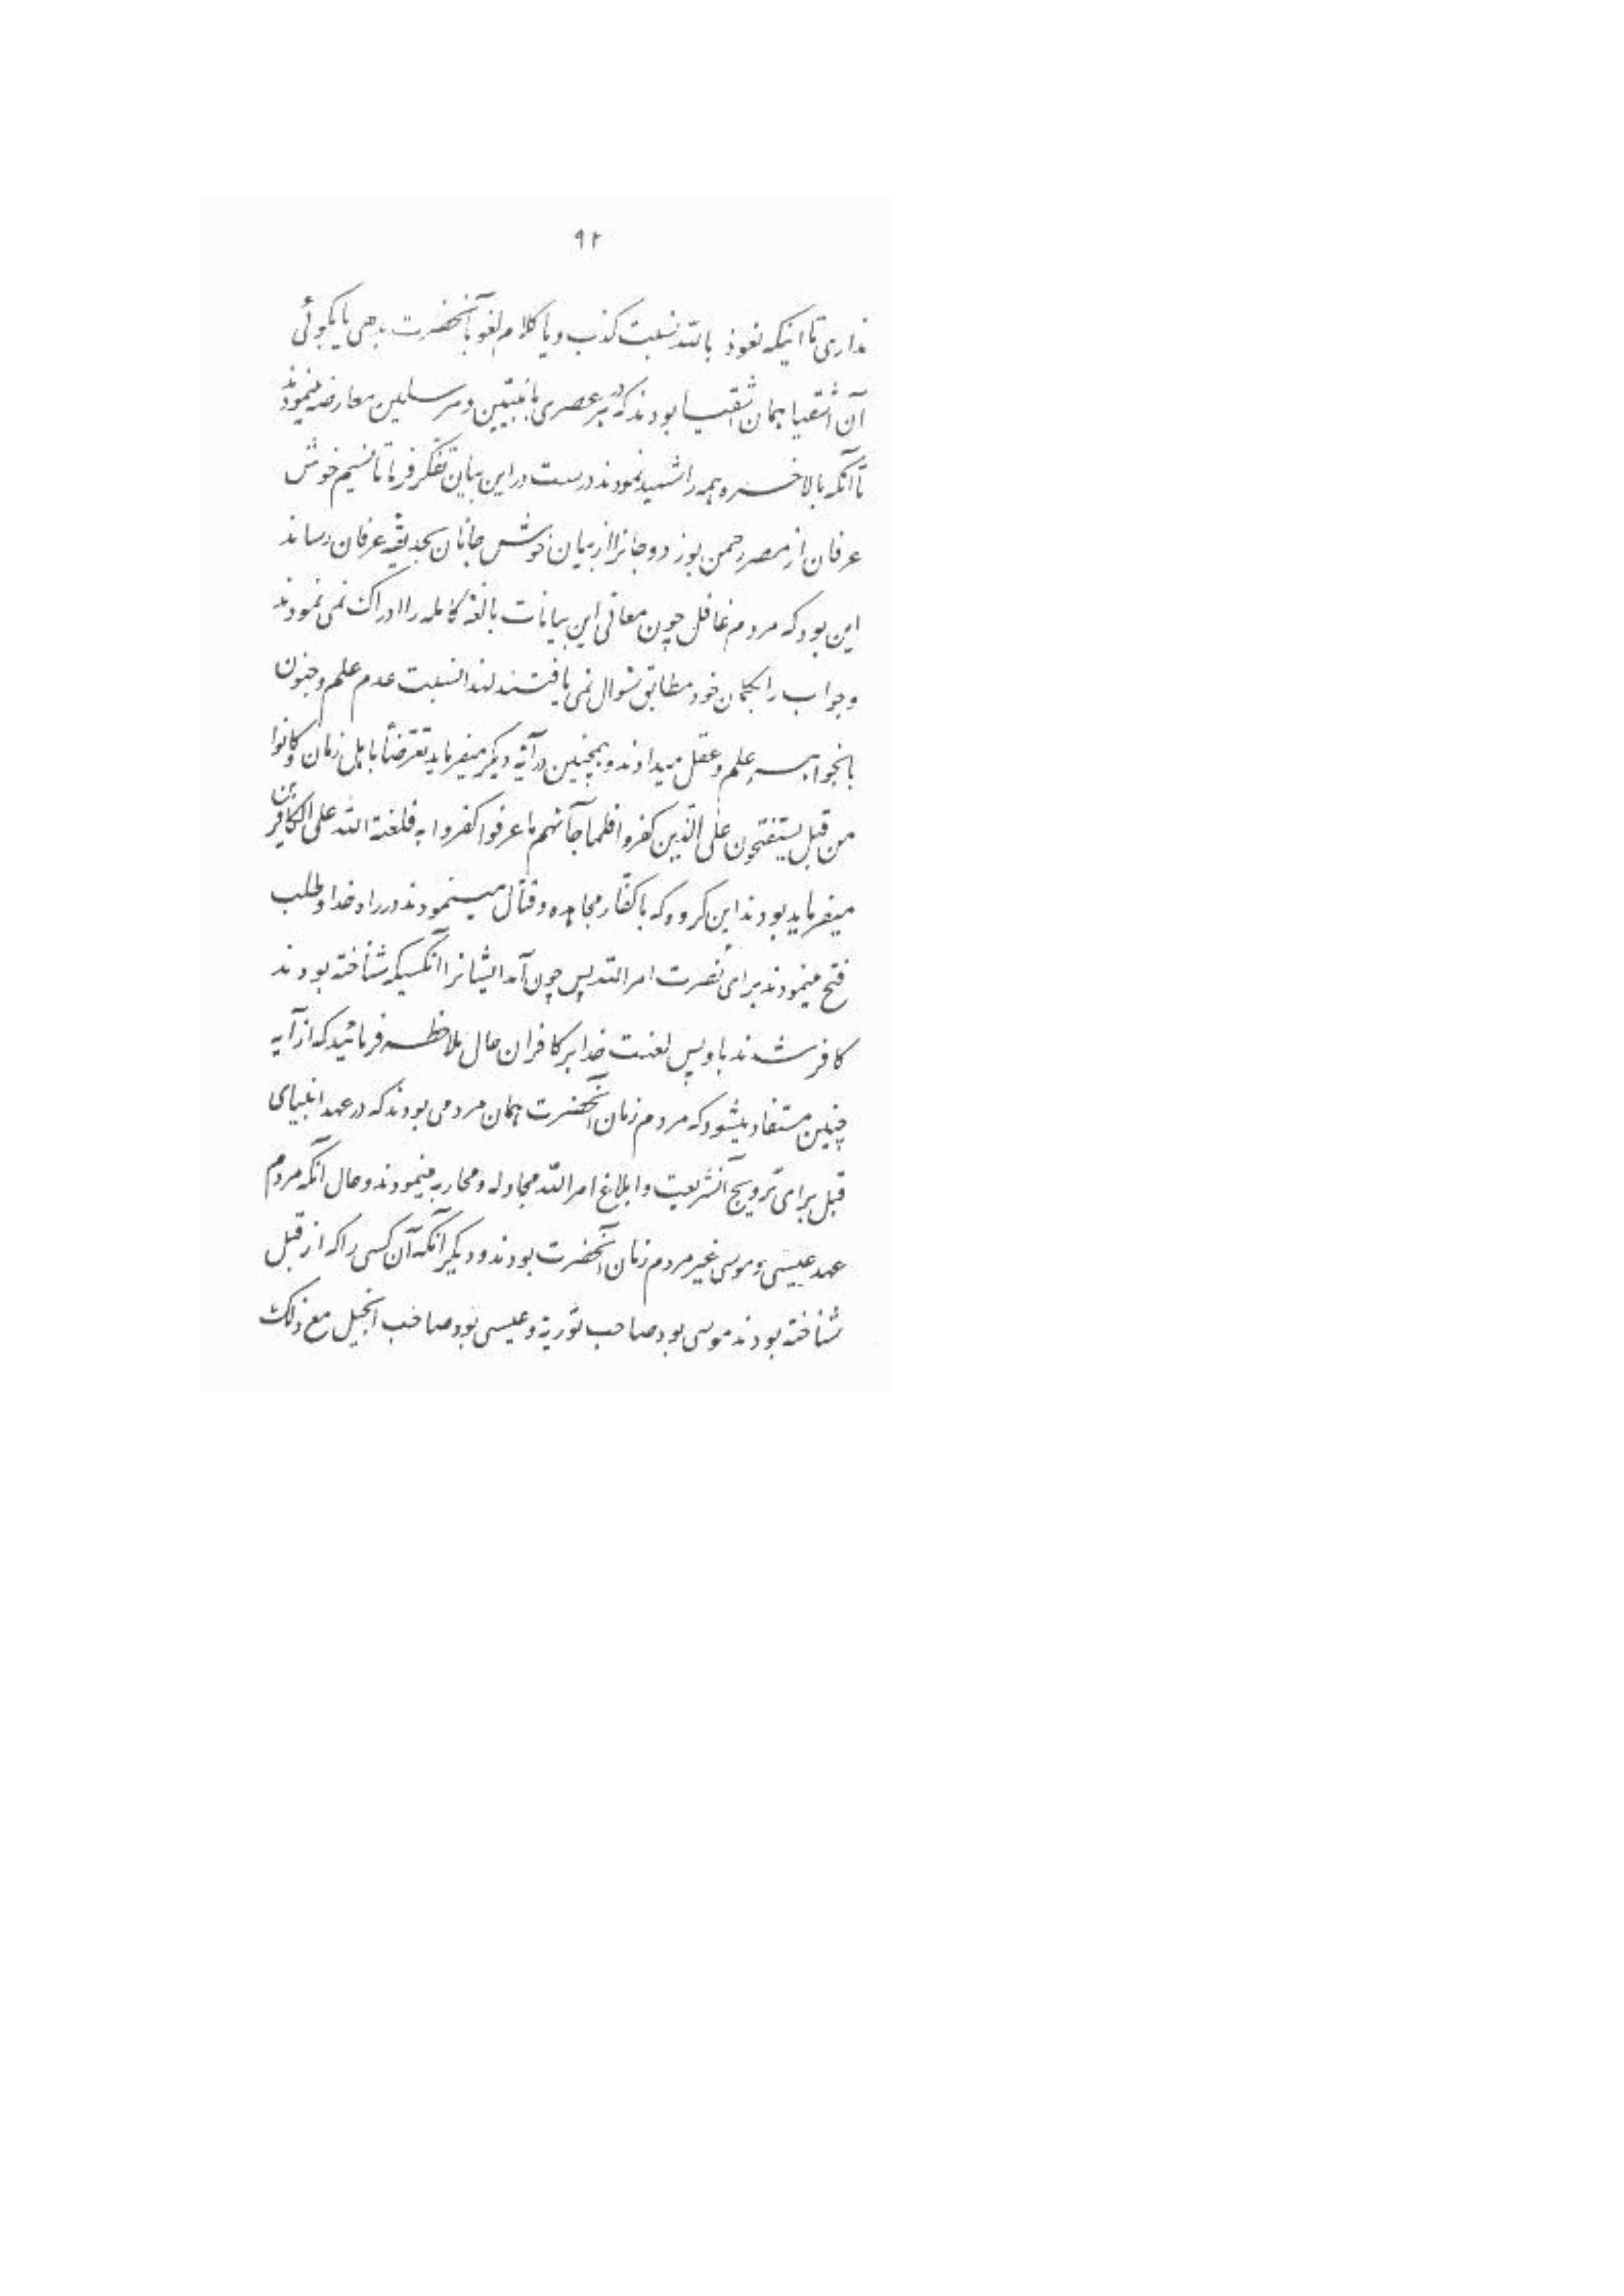 ۹۲
نداری تا اینکه نعوذ بالله نسبت کذب و یا کلام لغو بآنحضرت بدهی یا بگوئی
آن اشقیا همان اشقیا بودند که در هر عصری با نبیّین و مرسلین معارضه مینمودند
تا آنکه بالاخره همه را شهید نمودند درست در این بیان تفکّر فرما تا نسیم خوش
عرفان از مصر رحمن بوزد و جانرا از بیان خوش جانان بحدیقه عرفان رساند
این بود که مردم غافل چون معانی این بیانات بالغه کامله را ادراک نمی نمودند
و جواب را بگمان خود مطابق سؤال نمی یافتند لهذا نسبت عدم علم و جنون
بآنجواهر علم و عقل میدادند و همچنین در آیه دیگر میفرماید تعرّضاً باهل زمان و کانوا
من قبل یستفتحون علی الّذین کفروا فلمّا جآئهم ما عرفوا کفروا به فلعنة الله علی الکافرین
میفرماید بودند این گروه که با کفّار مجاهده و قتال مینمودند در راه خدا و طلب
فتح مینمودند برای نصرت امر الله پس چون آمد ایشانرا آنکسیکه شناخته بودند
کافر شدند باو پس لعنت خدا بر کافران حال ملاحظه فرمائید که از آیه
چنین مستفاد میشود که مردم زمان آنحضرت همان مردمی بودند که در عهد انبیای
قبل برای ترویج آنشریعت و ابلاغ امر الله مجادله و محاربه مینمودند و حال آنکه مردم
عهد عیسی و موسی غیر مردم زمان آنحضرت بودند و دیگر آنکه آن کسی را که از قبل
شناخته بودند موسی بود صاحب توریة و عیسی بود صاحب انجیل مع ذلک